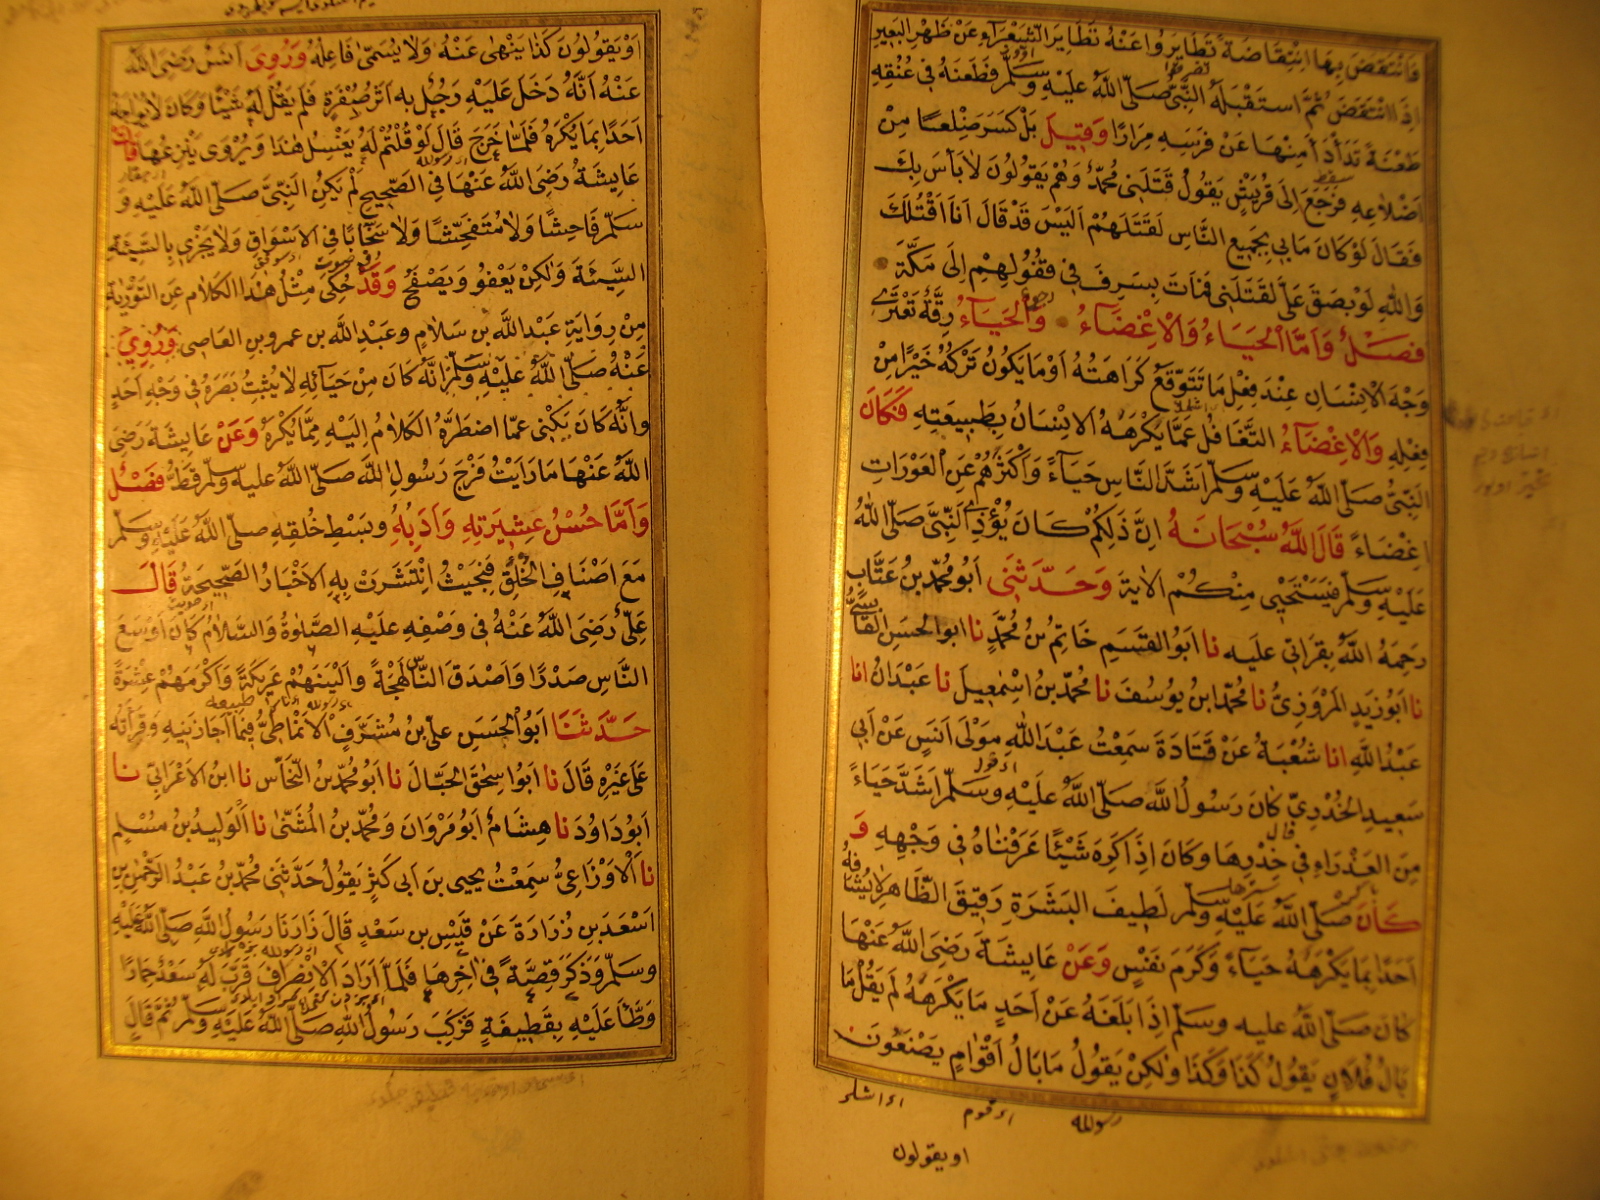 فَانْتَفَضَ بِهَا انْتِفَاضَةً تَطَايَرُوا عَنْهُ تَطَايُرَ الشَّعْرَاءِ عَنْ ظَهْرِ الْبَعِيرِ
اِذَا انْتَفَضَ ثُمَّ اسْتَقْبَلَهُ النَّبِيُّ صَلَّى اللَّهُ عَلَيْهِ وَسَلَّمَ فَطَعَنَهُ فِي عُنُقِهِ
طَعْنَةً تَدَأْدَأَ مِنْهَا عَنْ فَرَسِهِ مِرَارًا وَقِيلَ بَلْ كَسَرَ ضِلْعًا مِنْ
اَضْلَاعِهِ فَرَجَعَ اِلَى قُرَيْشٍ يَقُولُ قَتَلَنِي مُحَمَّدٌ وَهُمْ يَقُولُونَ لَا بَأْسَ بِكَ
فَقَالَ لَوْ كَانَ مَا بِي بِجَمِيعِ النَّاسِ لَقَتَلَهُمْ اَلَيْسَ قَدْ قَالَ اَنَا اَقْتُلُكَ
وَاللَّهِ لَوْ بَصَقَ عَلَيَّ لَقَتَلَنِي فَمَاتَ بِسَرِفَ فِي قُفُولِهِمْ اِلَى مَكَّةَ
فَصْلٌ وَاَمَّا الْحَيَاءُ وَالْاِغْضَاءُ وَالْحَيَاءُ رِقَّةٌ تَعْتَرِي
وَجْهَ الْاِنْسَانِ عِنْدَ فِعْلِ مَا تُتَوَقَّعُ كَرَاهَتُهُ اَوْ مَا يَكُونُ تَرْكُهُ خَيْرًا مِنْ
فِعْلِهِ وَالْاِغْضَاءُ التَّغَافُلُ عَمَّا يَكْرَهُهُ الْاِنْسَانُ بِطَبِيعَتِهِ فَكَانَ
النَّبِيُّ صَلَّى اللَّهُ عَلَيْهِ وَسَلَّمَ اَشَدَّ النَّاسِ حَيَاءً وَاَكْثَرَهُمْ عَنِ الْعَوْرَاتِ
اِغْضَاءً قَالَ اللَّهُ سُبْحَانَهُ اِنَّ ذَلِكُمْ كَانَ يُؤْذِي النَّبِيَّ صَلَّى اللَّهُ
عَلَيْهِ وَسَلَّمَ فَيَسْتَحْيِي مِنْكُمْ الْاٰيَةَ وَحَدَّثَنِي اَبُو مُحَمَّدِ بْنُ عَتَّابٍ
رَحِمَهُ اللَّهُ بِقِرَاتِي عَلَيْهِ نا اَبُو الْقٰسِمِ حَاتِمُ بْنُ مُحَمَّدٍ نا ابُو الْحَسَنِ الْقَابِسِيُّ
نا اَبُو زَيْدٍ الْمَرْوَزِيُّ نا مُحَمَّدُ ابْنُ يُوسُفَ نا مُحَمَّدُ بْنُ اِسْمٰعِيلَ نا عَبْدَانُ انا
عَبْدُ اللَّهِ انا شُعْبَةُ عَنْ قَتَادَةَ سَمِعْتُ عَبْدَ اللَّهِ مَوْلَى اَنَسٍ عَنْ اَبِي
سَعِيدٍ الْخُدْرِيِّ كَانَ رَسُولُ اللَّهِ صَلَّى اللَّهُ عَلَيْهِ وَسَلَّمَ اَشَدَّ حَيَاءً
مِنَ الْعَذْرَاءِ فِي خِدْرِهَا وَكَانَ اِذَا كَرِهَ شَيْئًا عَرَفْنَاهُ فِي وَجْهِهِ وَ
كَانَ صَلَّى اللَّهُ عَلَيْهِ وَسَلَّمَ لَطِيفَ الْبَشَرَةِ رَقِيقَ الظَّاهِرِ لَا يُشَافِهُ
اَحَدًا بِمَا يَكْرَهُهُ حَيَاءً وَكَرَمَ نَفْسٍ وَعَنْ عَايِشَةَ رَضِيَ اللَّهُ عَنْهَا
كَانَ صَلَّى اللَّهُ عَلَيْهِ وَسَلَّمَ اِذَا بَلَغَهُ عَنْ اَحَدٍ مَا يَكْرَهُهُ لَمْ يَقُلْ مَا
بَالُ فُلَانٍ يَقُولُ كَذَا وَكَذَا وَلٰكِنْ يَقُولُ مَا بَالُ اَقْوَامٍ يَصْنَعُونَ
او يقولون
اَوْ يَقُولُونَ كَذَا يَنْهَى عَنْهُ وَلَا يُسَمِّى فَاعِلَهُ وَرُوِيَ اَنَسٌ رَضِيَ اللَّهُ
عَنْهُ اَنَّهُ دَخَلَ عَلَيْهِ رَجُلٌ بِهِ اَثَرُ صُفْرَةٍ فَلَمْ يَقُلْ لَهُ شَيْئًا وَكَانَ لَا يُوَاجِهُ
اَحَدًا بِمَا يَكْرَهُ فَلَمَّا خَرَجَ قَالَ لَوْ قُلْتُمْ لَهُ يَغْسِلُ هٰذَا وَيُرْوَى يَنْزِعُهَا قَالَتْ
عَايِشَةُ رَضِيَ اللَّهُ عَنْهَا فِي الصَّحِيحِ لَمْ يَكُنِ النَّبِيُّ صَلَّى اللَّهُ عَلَيْهِ وَ
سَلَّمَ فَاحِشًا وَلَا مُتَفَحِّشًا وَلَا سَخَّابًا فِي الْاَسْوَاقِ وَلَا يَجْزِي بِالسَّيِّئَةِ
السَّيِّئَةَ وَلٰكِنْ يَعْفُو وَيَصْفَحُ وَقَدْ حُكِيَ مِثْلُ هٰذَا الْكَلَامِ عَنِ التَّوْرٰيةِ
مِنْ رِوَايَةِ عَبْدِ اللَّهِ بْنِ سَلَامٍ وَعَبْدِ اللَّهِ بْنِ عَمْرِو بْنِ الْعَاصِى وَرُوِيَ
عَنْهُ صَلَّى اللَّهُ عَلَيْهِ وَسَلَّمَ اَنَّهُ كَانَ مِنْ حَيَائِهِ لَا يُثْبِتُ بَصَرَهُ فِي وَجْهِ اَحَدٍ
وَاَنَّهُ كَانَ يَكْنِي عَمَّا اضْطَرَّهُ الْكَلَامُ اِلَيْهِ مِمَّا يَكْرَهُ وَعَنْ عَايِشَةَ رَضِيَ
اللَّهُ عَنْهَا مَا رَاَيْتُ فَرْجَ رَسُولِ اللَّهِ صَلَّى اللَّهُ عَلَيْهِ وَسَلَّمَ قَطُّ فَصْلٌ
وَاَمَّا حُسْنُ عِشِيرَتِهِ وَاَدَبِهِ وَبَسْطِ خُلُقِهِ صَلَّى اللَّهُ عَلَيْهِ وَسَلَّمَ
مَعَ اَصْنَافِ الْخَلْقِ فَبِحَيْثُ انْتَشَرَتْ بِهِ الْاَخْبَارُ الصَّحِيحَةُ قَالَ
عَلِيٌّ رَضِيَ اللَّهُ عَنْهُ فِي وَصْفِهِ عَلَيْهِ الصَّلٰوةُ وَالسَّلَامُ كَانَ اَوْسَعَ
النَّاسِ صَدْرًا وَاَصْدَقَ النَّاسِ لَهْجَةً وَاَلْيَنَهُمْ عَرِيكَةً وَاَكْرَمَهُمْ عِشْرَةً
حَدَّثَنَا اَبُو الْحَسَنِ عَلِيُّ بْنُ مُشَرَّفٍ الْاَنْمَاطِيُّ فِيمَا اَجَازَنِيهِ وَقَرَأْتُهُ
عَلَى غَيْرِهِ قَالَ نا اَبُو اِسْحٰقَ الْحَبَّالُ نا اَبُو مُحَمَّدِ بْنُ النَّحَّاسِ نا ابْنُ الْاَعْرَابِيِّ نا
اَبُو دَاوُدَ نا هِشَامٌ اَبُو مَرْوَانَ وَمُحَمَّدُ بْنُ الْمُثَنّٰى نا الْوَلِيدُ بْنُ مُسْلِمٍ
نا الْاَوْزَاعِيُّ سَمِعْتُ يَحْيَى بْنَ اَبِي كَثِيرٍ يَقُولُ حَدَّثَنِي مُحَمَّدُ بْنُ عَبْدِ الرَّحْمٰنِ بْنِ
اَسْعَدَ بْنِ زُرَارَةَ عَنْ قَيْسِ بْنِ سَعْدٍ قَالَ زَارَنَا رَسُولُ اللَّهِ صَلَّى اللَّهُ عَلَيْهِ
وَسَلَّمَ وَذَكَرَ قِصَّةً فِي اٰخِرِهَا فَلَمَّا اَرَادَ الْاِنْصِرَافَ قَرَّبَ لَهُ سَعْدٌ حِمَارًا
وَطَّأَ عَلَيْهِ بِقَطِيفَةٍ فَرَكِبَ رَسُولُ اللَّهِ صَلَّى اللَّهُ عَلَيْهِ وَسَلَّمَ ثُمَّ قَالَ